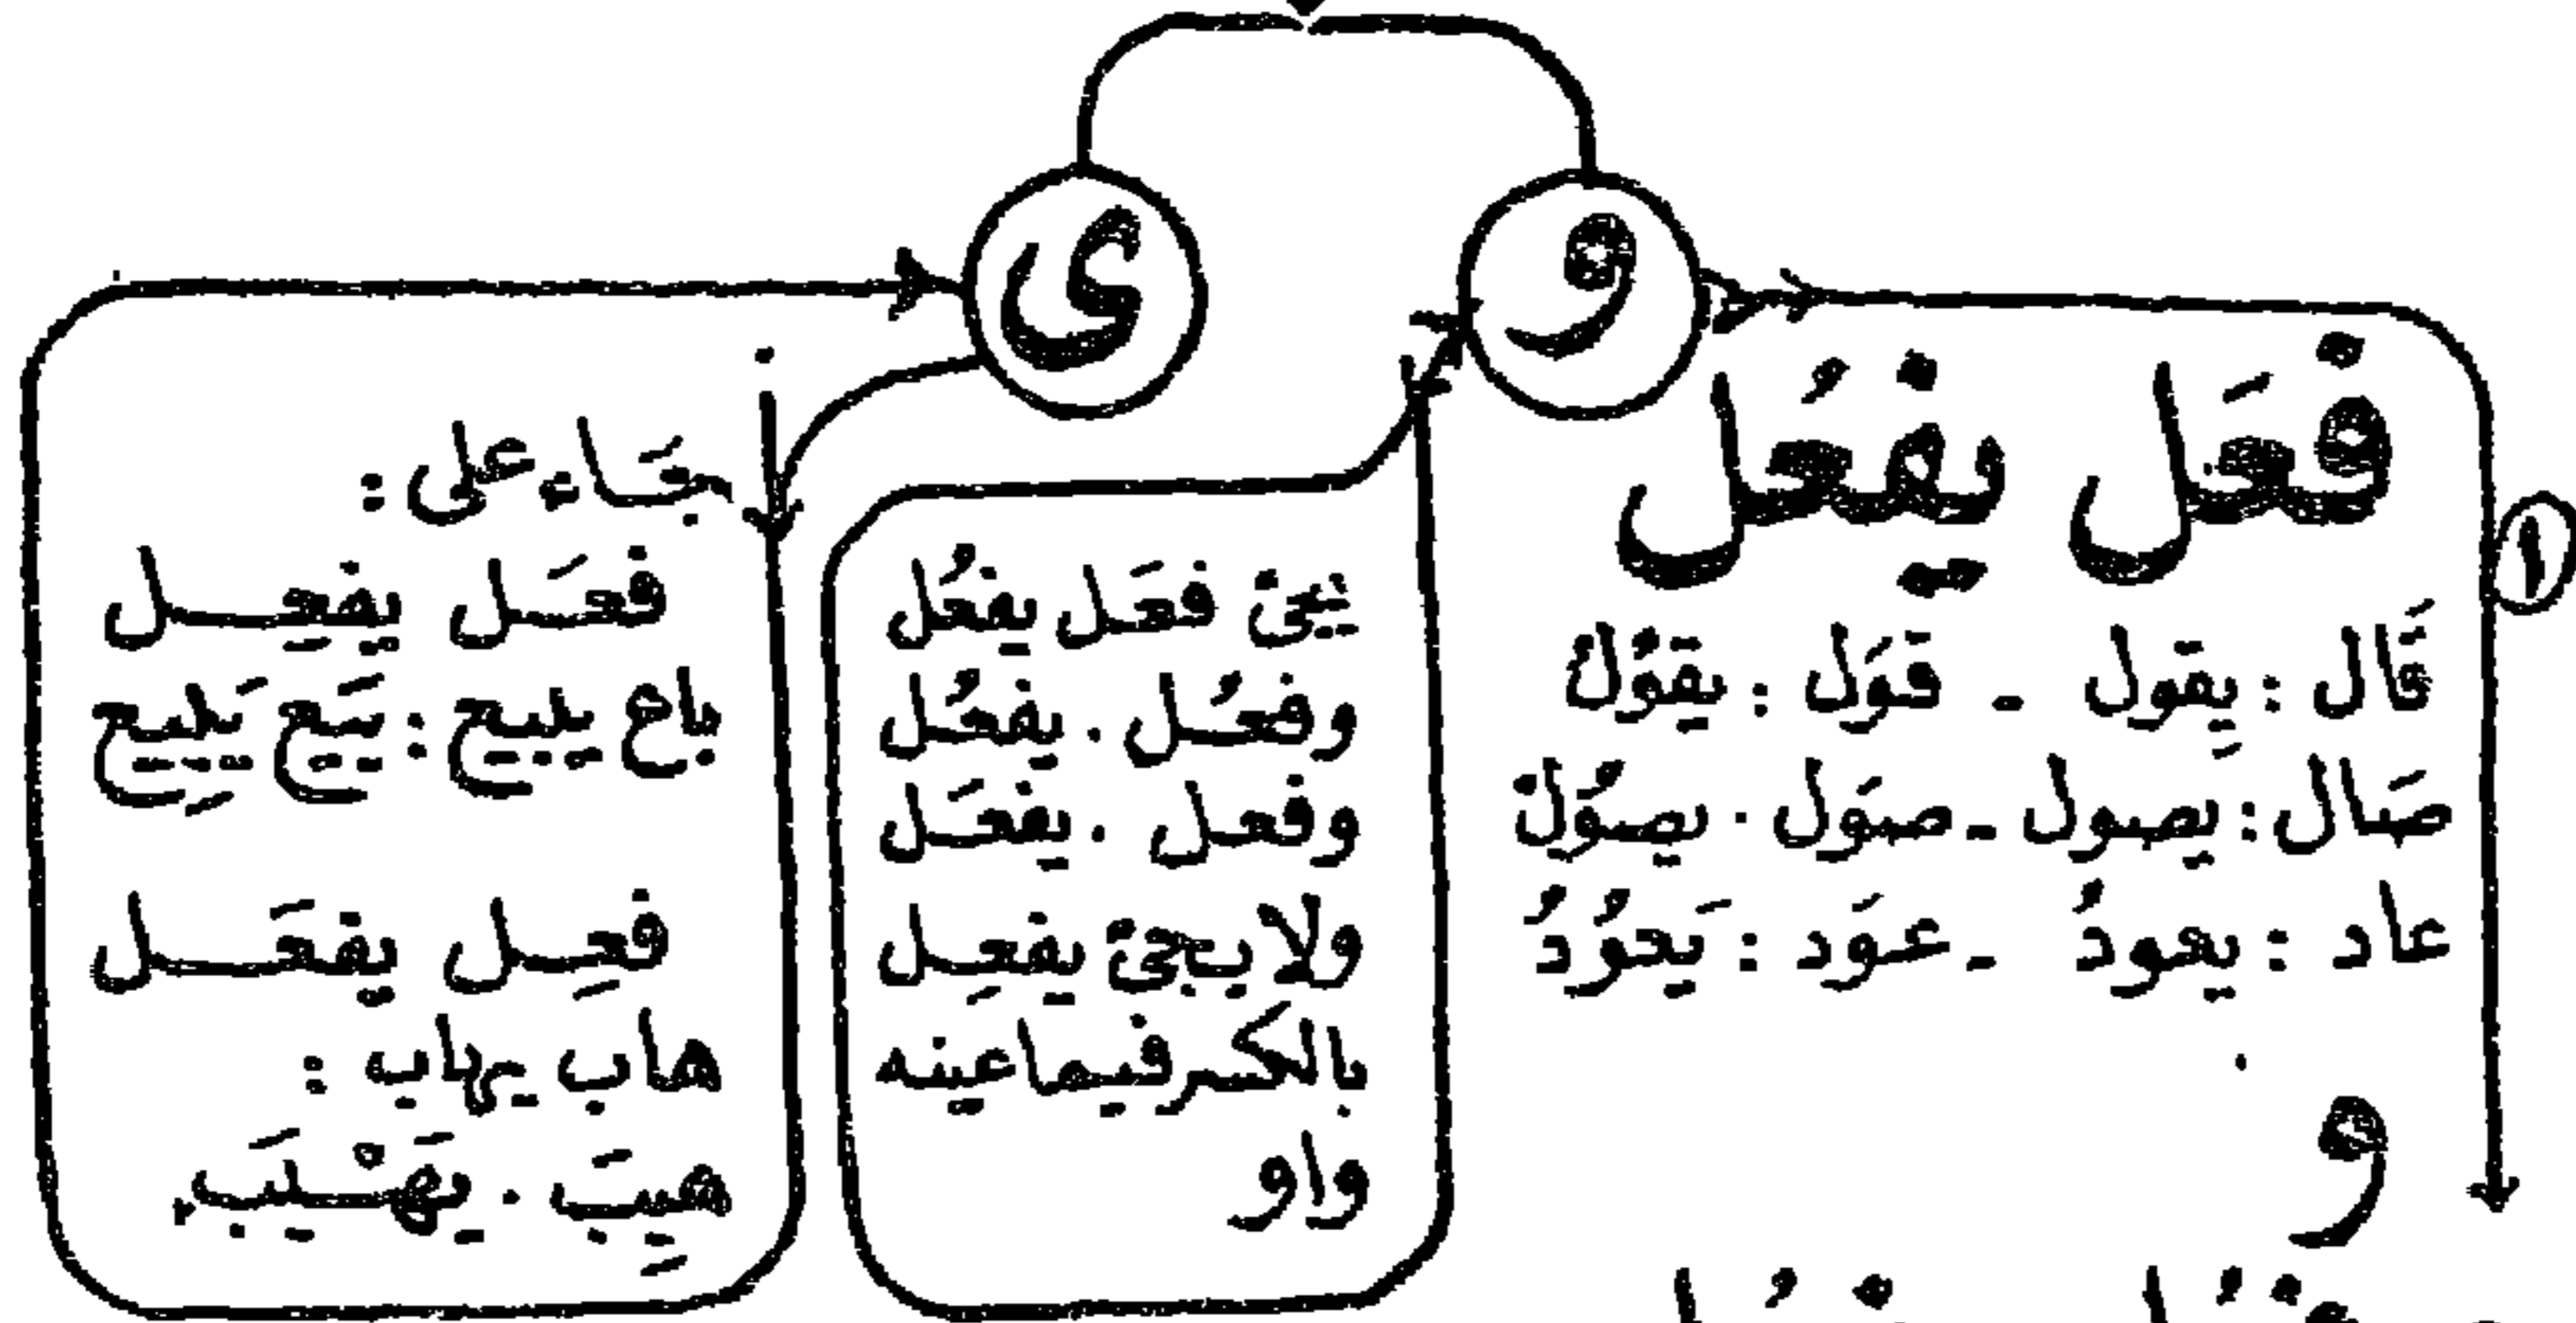 و
ى
١
فعَل يفعُل
قَال : يقول - قوَل : يقوُلُ
صَال : يصول - صوَل . يصوُلُ
عاد : يعودُ - عوَد : يَعوُدُ
و
يجئ فعَل يفعُل
وفعُل . يفعُل
وفعل . يفعَل
ولا يجئ يفعِل
بالكسر فيما عينه
واو
جَاء على :
فعَل يفعِل
باع يبيع : بيَع يَبيِع
فعِل يفعَل
هاب يهاب :
هيِبَ . يَهْيَب